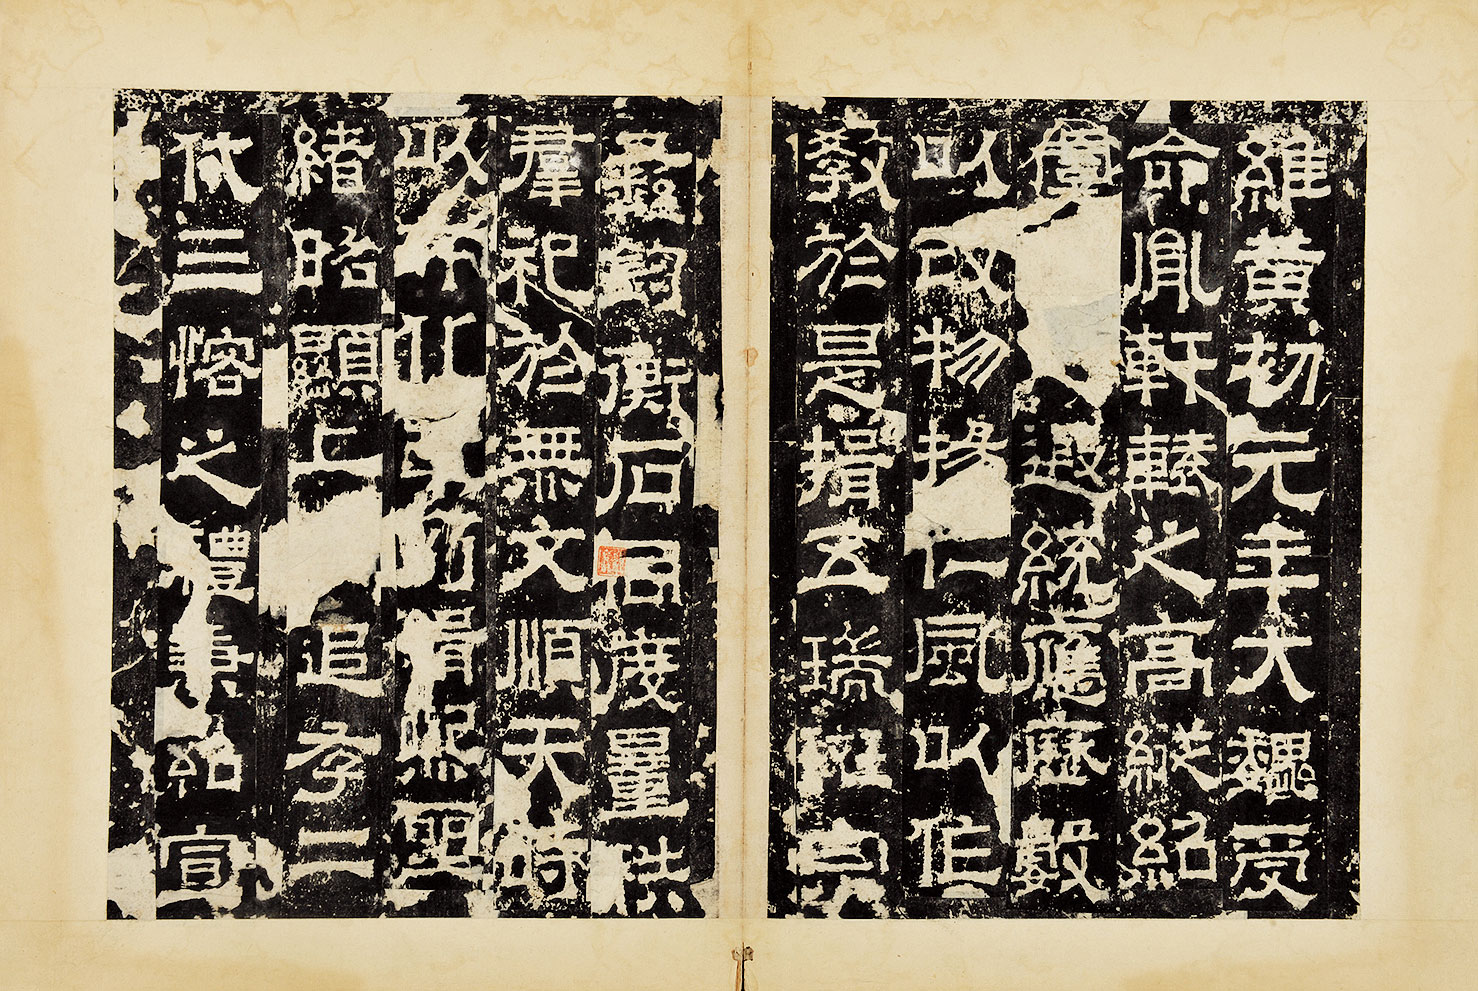 維黃初元年大魏受
命胤軒轅之高縱紹
虞遐統應歷數
以改物揚仁風以作
教於是揖五瑞班宗
彝鈞衡石同度量秩
羣祀於無文順天時
以布化乃緝熙聖
緒昭顯上追存二
代三愙之禮兼紹宣